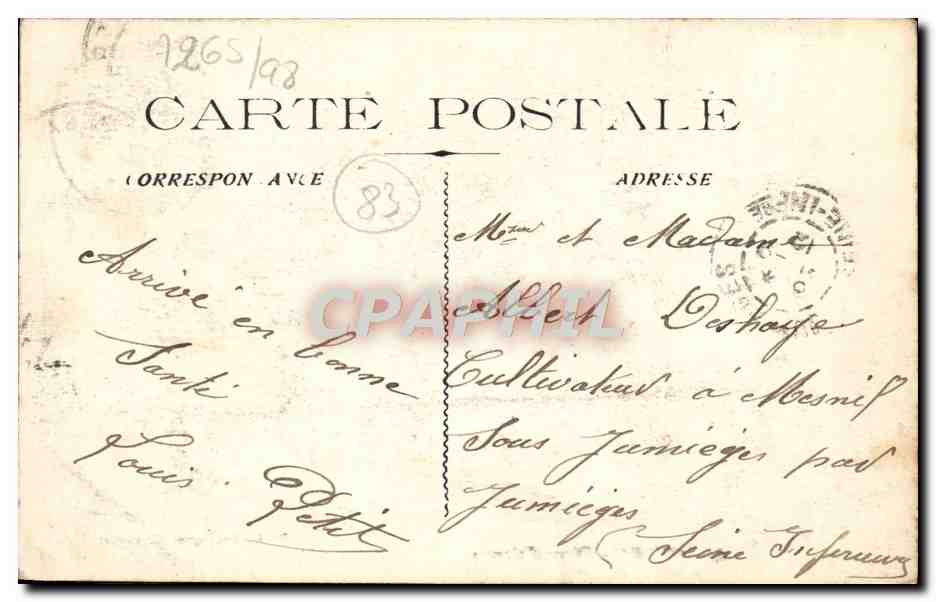 1265/98
CARTE POSTALE
CORRESPONDANCE
ADRESSE
83
Arrivé en bonne
Santé
Louis Petit
CPAPHIL
Mr et Madame
Albert Deshaye
Cultivateur à Mesnil
Sous Jumièges par
Jumièges
(Seine Inférieure
SEINE-INFRE